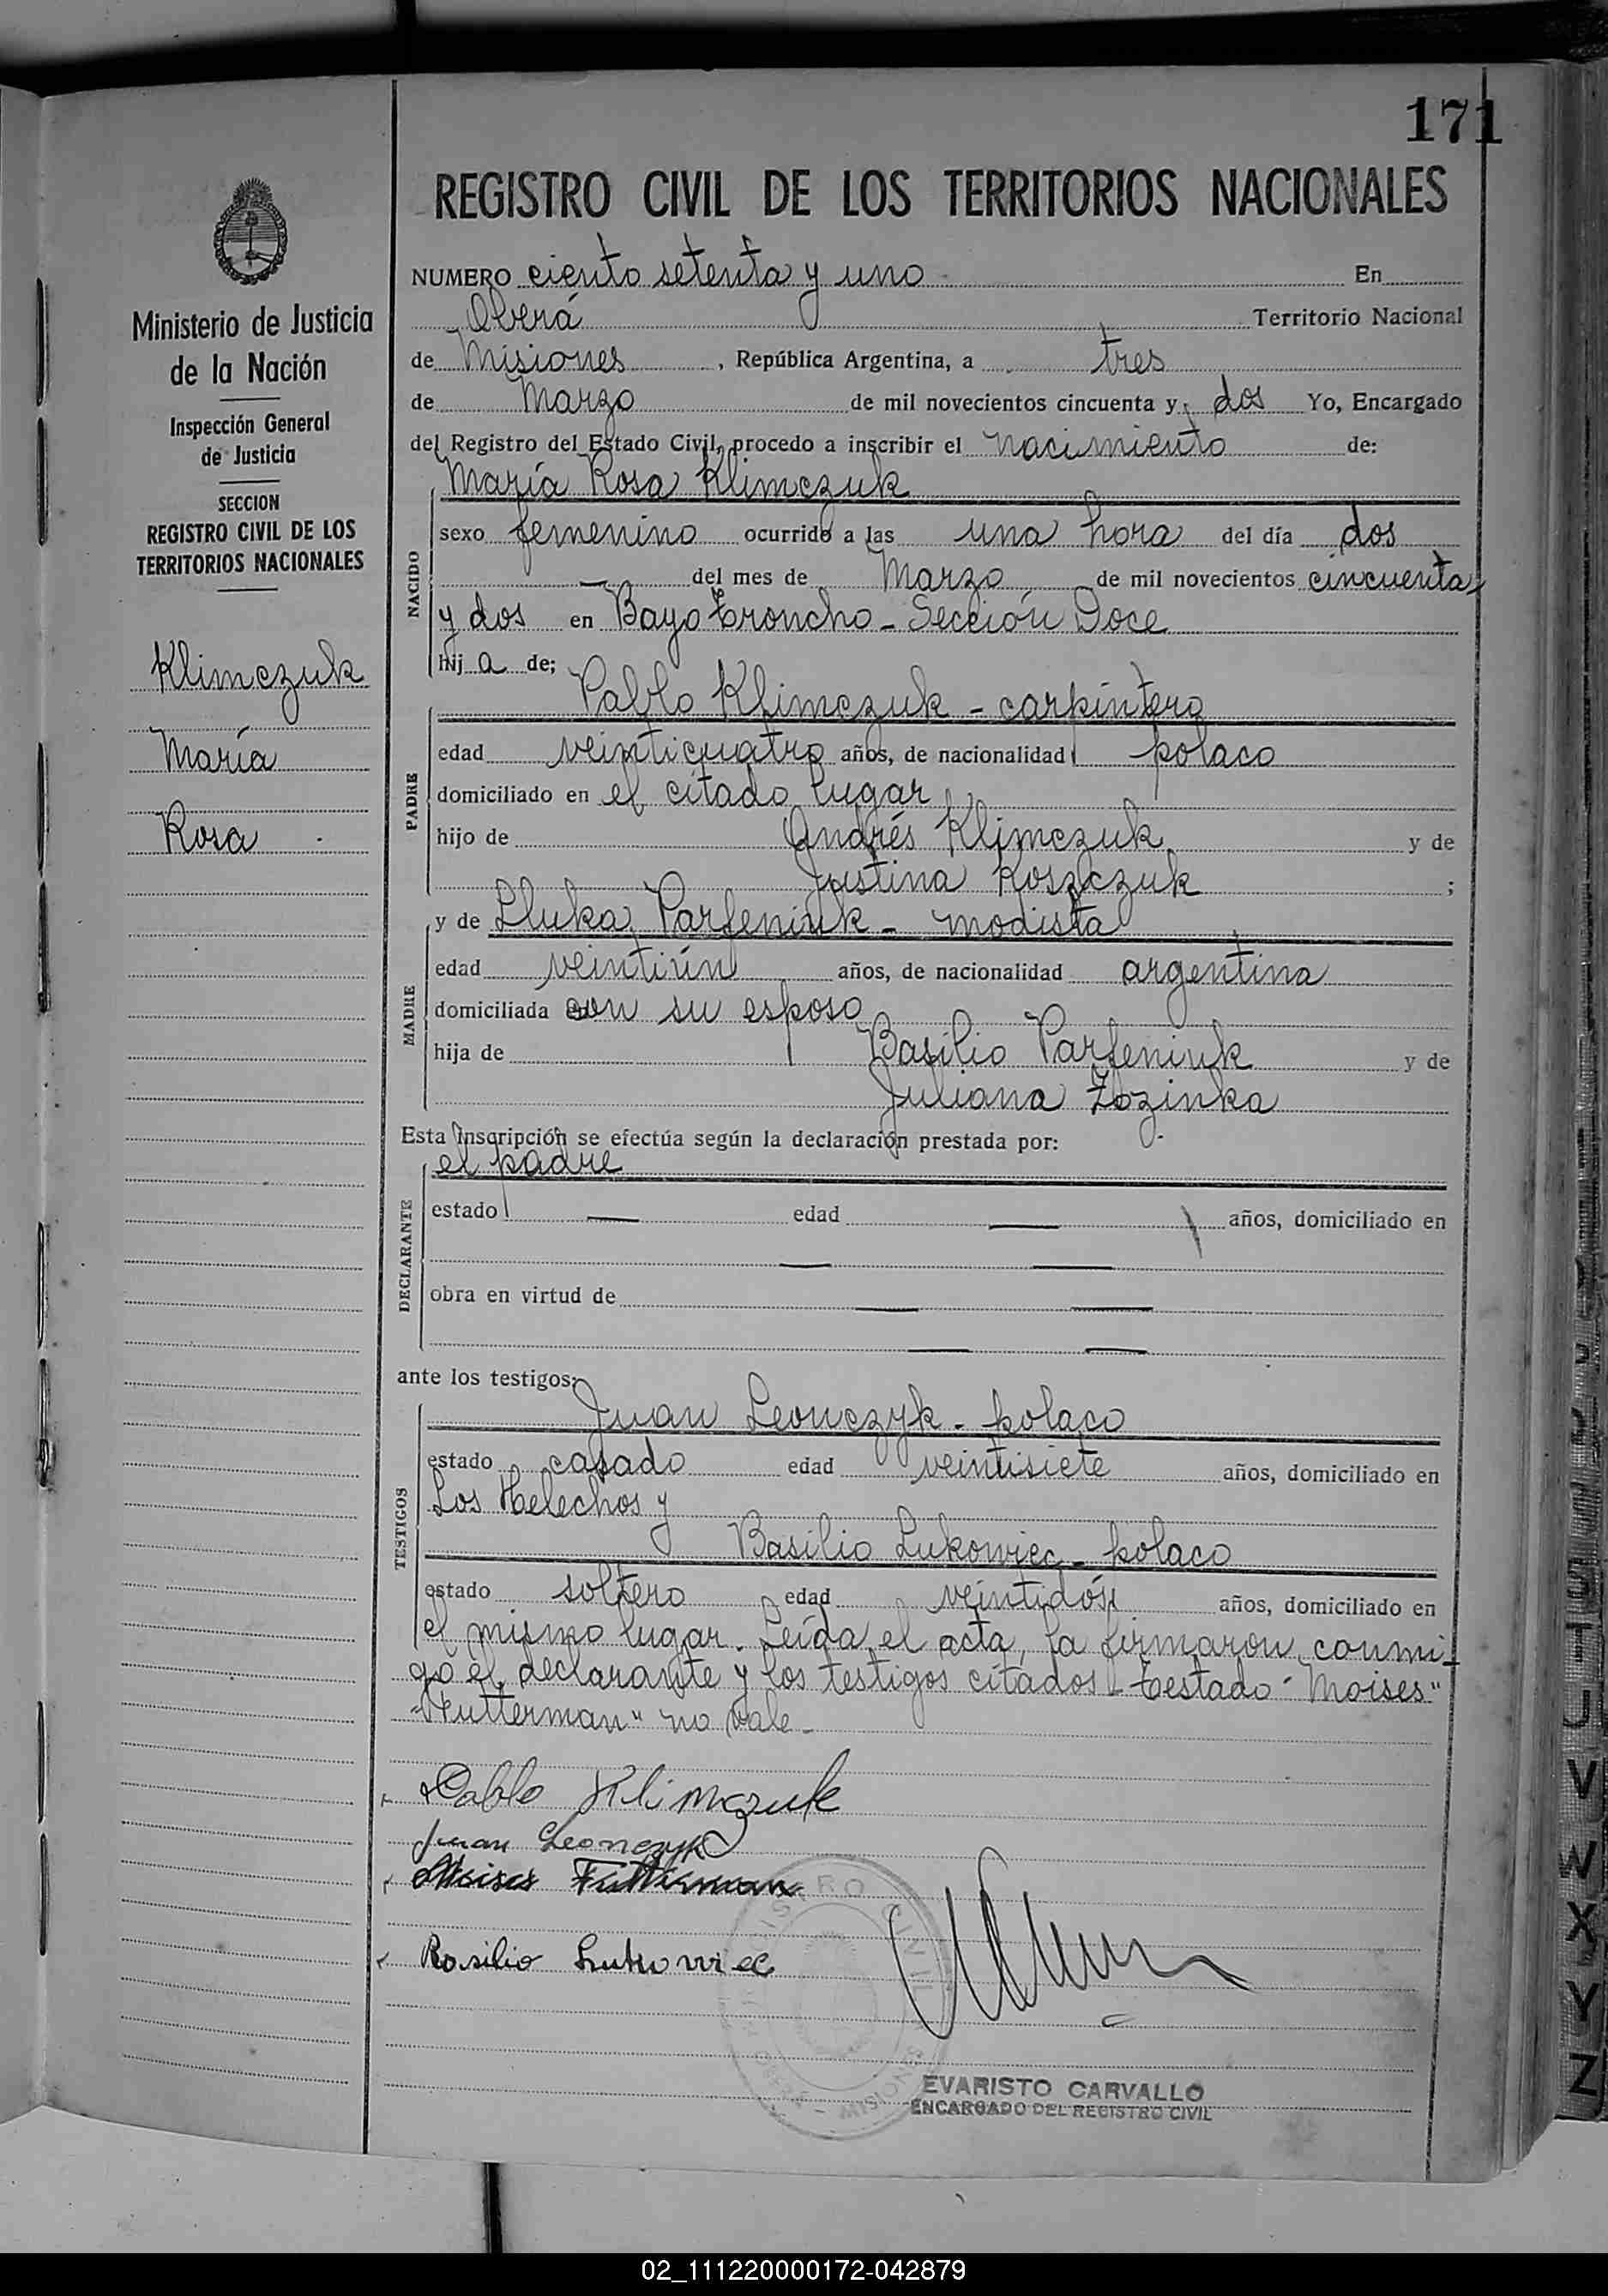 171
REGISTRO CIVIL DE LOS TERRITORIOS NACIONALES
Ministerio de Justicia
de la Nación
Inspección General
de Justicia
SECCION
REGISTRO CIVIL DE LOS
TERRITORIOS NACIONALES
Klimczuk
María
Rosa
NUMERO ciento setenta y uno En
Oberá Territorio Nacional
de Misiones, República Argentina, a tres
de Marzo de mil novecientos cincuenta y dos Yo, Encargado
del Registro del Estado Civil, procedo a inscribir el nacimiento de:
María Rosa Klimczuk
NACIDO
sexo femenino ocurrido a las una hora del día dos
— del mes de Marzo de mil novecientos cincuenta
y dos en Bayo Troncho - Sección Doce
hija de;
Pablo Klimczuk - carpintero
PADRE
edad veinticuatro años, de nacionalidad polaco
domiciliado en el citado lugar
hijo de Andrés Klimczuk y de
Justina Koszczuk;
y de Lluka Parfeniuk - modista
MADRE
edad veintiún años, de nacionalidad argentina
domiciliada con su esposo
hija de Basilio Parfeniuk y de
Juliana
Esta inscripción se efectúa según la declaración prestada por:
el padre
DECLARANTE
estado — edad — años, domiciliado en
— —
obra en virtud de — —
— —
ante los testigos:
Juan Leonczyk - polaco
TESTIGOS
estado casado edad veintisiete años, domiciliado en
Los Helechos y
Basilio Lukowiec - polaco
estado soltero edad veintidós años, domiciliado en
el mismo lugar. Leída el acta, la firmaron conmi-
go el declarante y los testigos citados - Testado "Moises"
"Futterman" no vale -
Pablo Klimczuk
Juan Leonczyk
Moises Futterman
Basilio Lukowiec
REGISTRO CIVIL
OBERA - MISIONES
EVARISTO CARVALLO
ENCARGADO DEL REGISTRO CIVIL
U
V
W
X
Y
Z
02_111220000172-042879